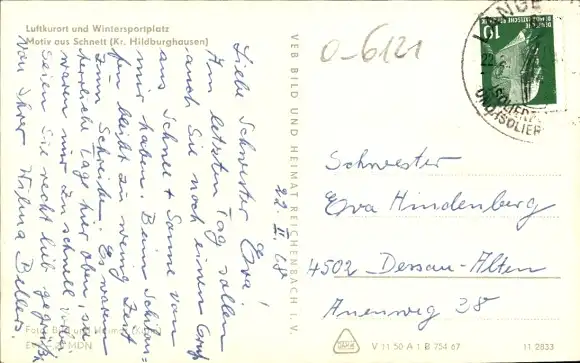 Luftkurort und Wintersportplatz
Motiv aus Schnett (Kr. Hildburghausen)
22. II. 68
Liebe Schwester Eva!
Am letzten Tag sollen
auch Sie noch einen Gruß
aus Schnee + Sonne von
mir haben. Beim Schilau-
fen bleibt zu wenig Zeit
zum Schreiben. Es waren
herrliche Tage hier oben, sie
waren nur zu schnell
Seien Sie recht lieb gegrüßt
von Ihrer Wilma
VEB BILD UND HEIMAT REICHENBACH I. V.
0-6121
10
DEUTSCHE
DEMOKRATISCHE
22.
Schwester
Eva Hindenberg
4502 Dessau-Alten
Auenweg 38
V 11 50 A 1 B 754 67
11 2833
MDN